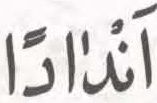 اَنْدَادًا